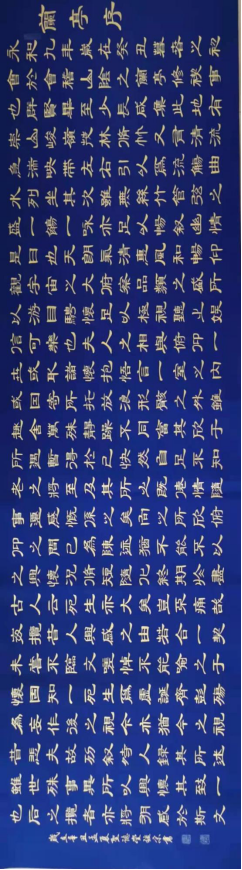 蘭亭序
永和九年歲在癸丑暮春之初
會於會稽山陰之蘭亭修禊事
也羣賢畢至少長咸集此地有
崇山峻嶺茂林脩竹又有清流
激湍映帶左右引以為流觴曲
水列坐其次雖無絲竹管弦之
盛一觴一詠亦足以暢敘幽情
是日也天朗氣清惠風和暢仰
觀宇宙之大俯察品類之盛所
以游目騁懷足以極視聽之娛
信可樂也夫人之相與俯仰一
世或取諸懷抱悟言一室之內
或因寄所托放浪形骸之外雖
趣舍萬殊靜躁不同當其欣于
所遇暫得於己快然自足不知
老之將至及其所之既倦情隨
事遷感慨係之矣向之所欣俯
仰之間已為陳迹猶不能不以
之興懷況脩短隨化終期於盡
古人云死生亦大矣豈不痛哉
每攬昔人興感之由若合一契
未嘗不臨文嗟悼不能喻之于
懷固知一死生為虛誕齊彭殤
為妄作後之視今亦猶今之視
昔悲夫故列敘時人錄其所述
雖世殊事異所以興懷其致一
也后之攬者亦將有感於斯文